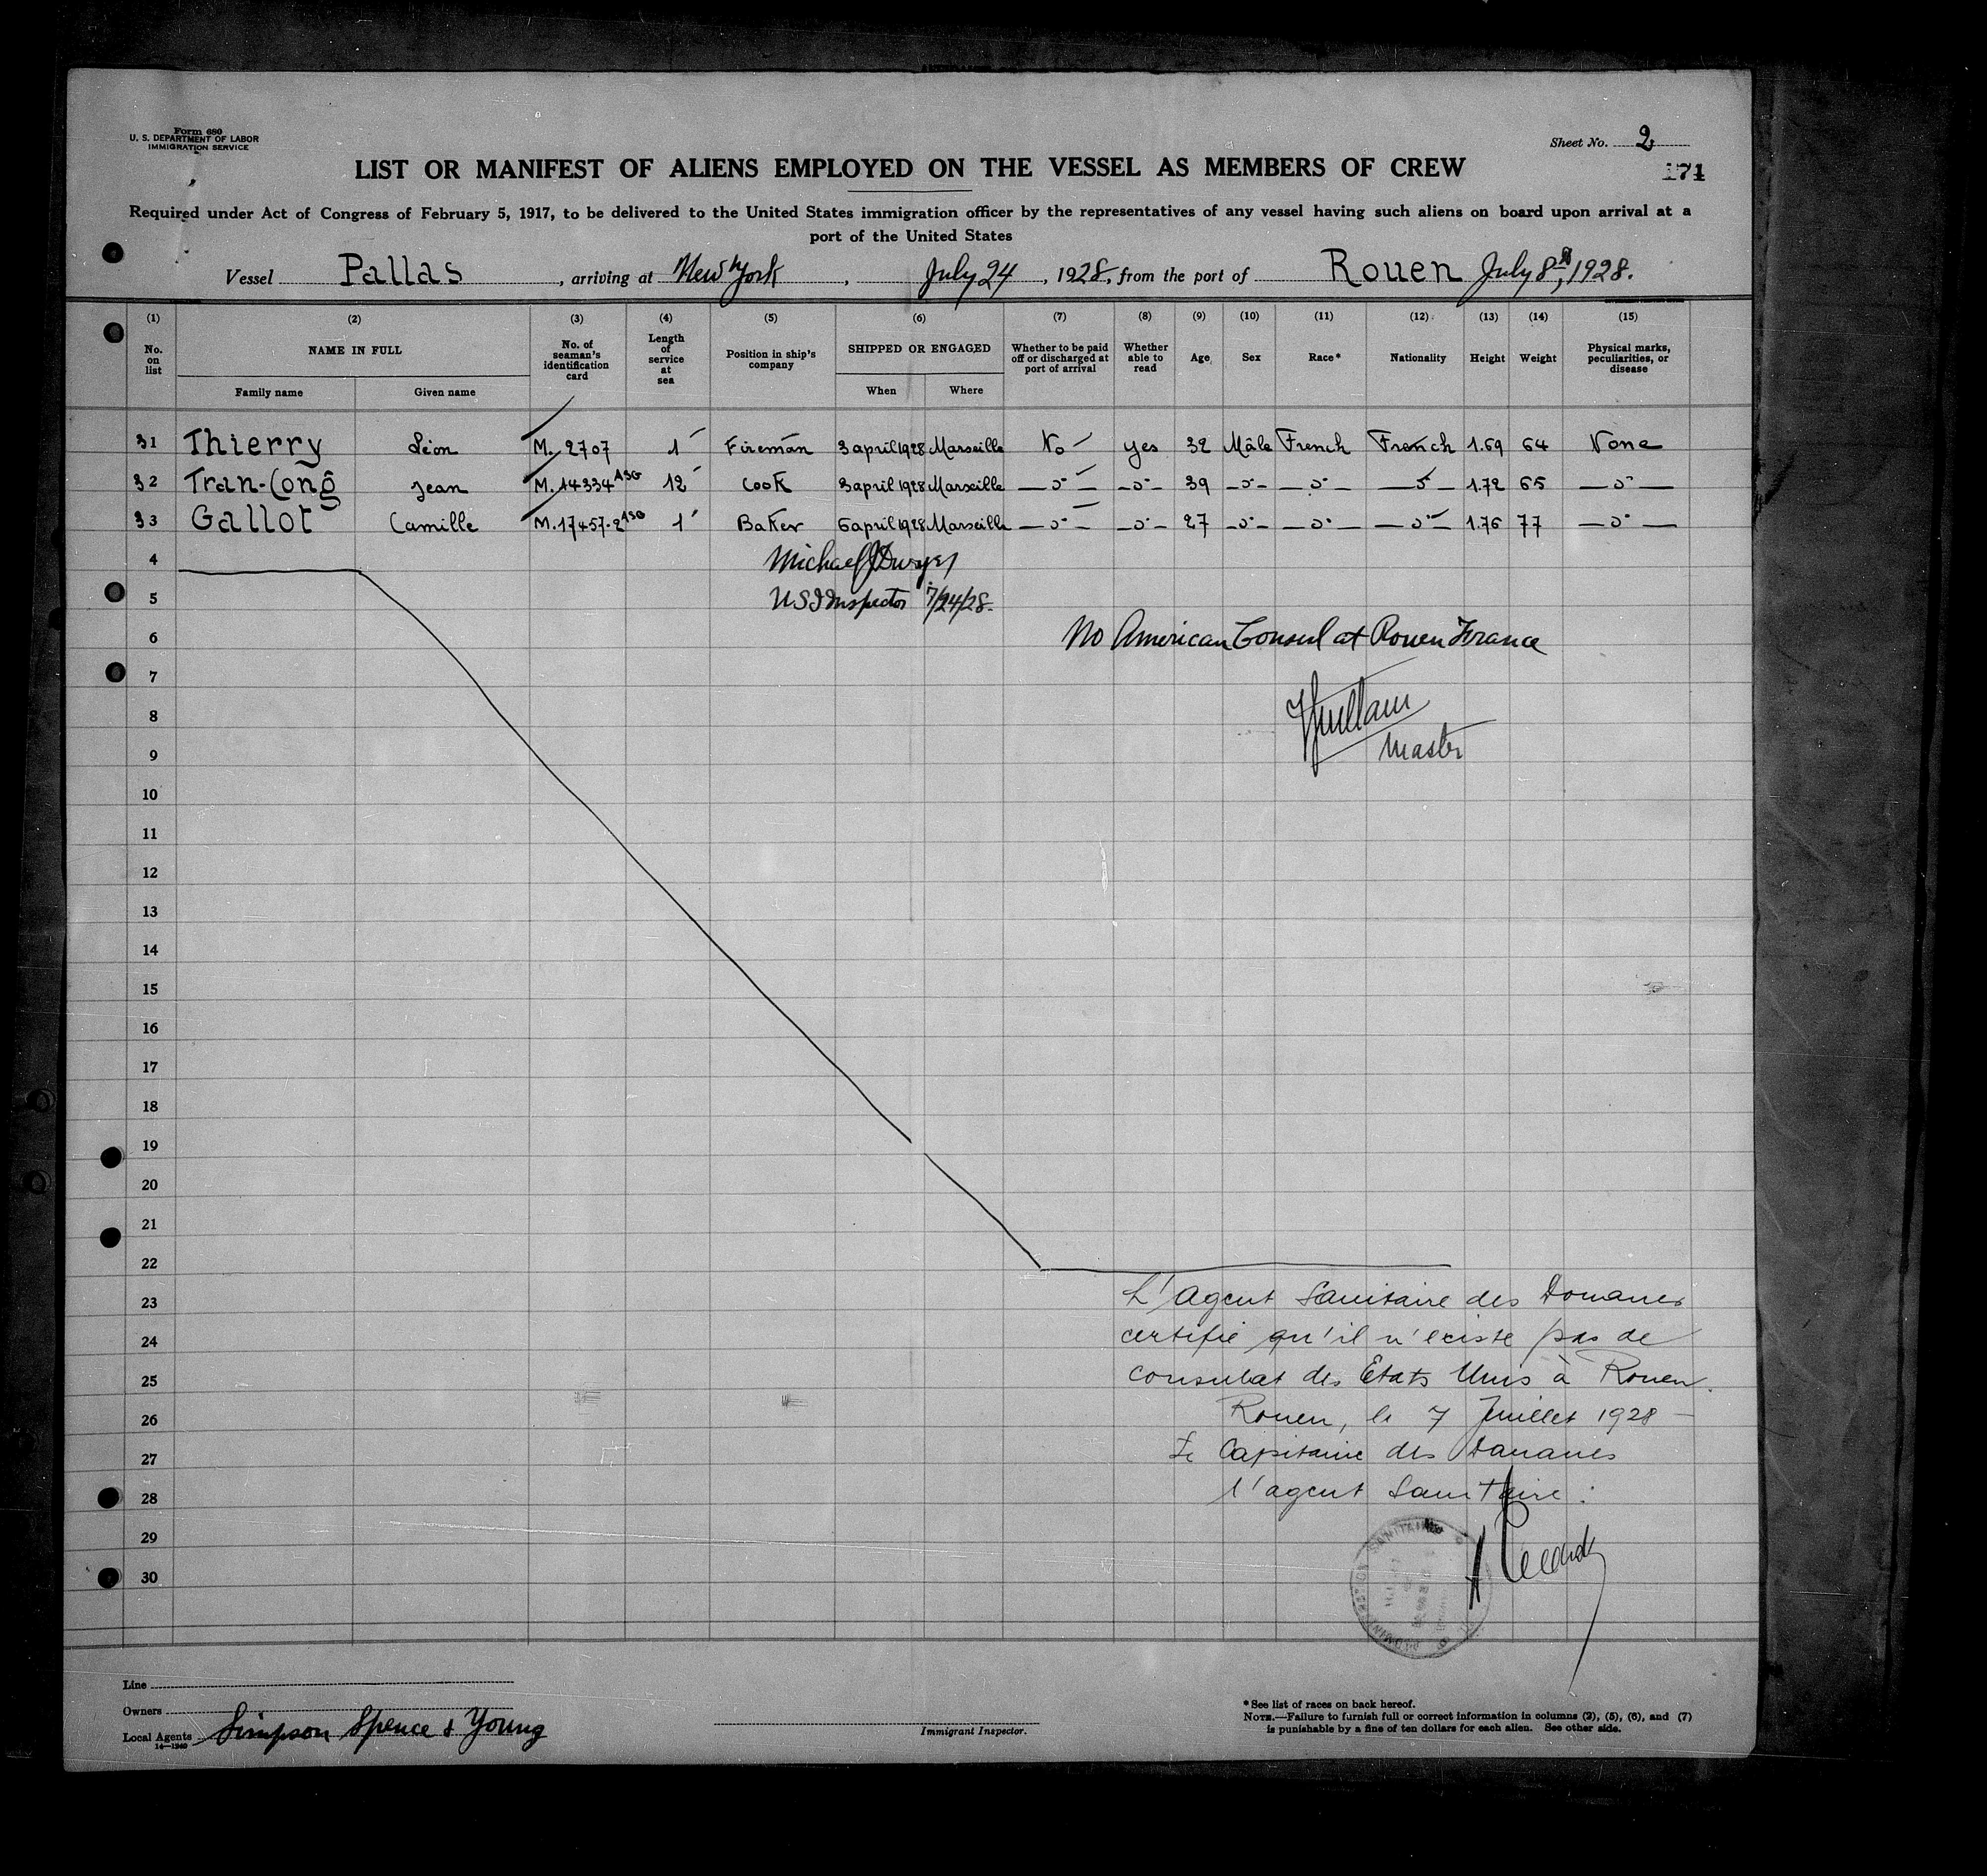 Form 680
U. S. DEPARTMENT OF LABOR
IMMIGRATION SERVICE
Sheet No. 2
171
LIST OR MANIFEST OF ALIENS EMPLOYED ON THE VESSEL AS MEMBERS OF CREW
Required under Act of Congress of February 5, 1917, to be delivered to the United States immigration officer by the representatives of any vessel having such aliens on board upon arrival at a
port of the United States
Vessel Pallas, arriving at New York, July 24, 1928, from the port of Rouen July 8th, 1928.
(1) (2) (3) (4) (5) (6) (7) (8) (9) (10) (11) (12) (13) (14) (15)
No. on list NAME IN FULL Family name Given name No. of seaman's identification card Length of service at sea Position in ship's company SHIPPED OR ENGAGED When Where Whether to be paid off or discharged at port of arrival Whether able to read Age Sex Race* Nationality Height Weight Physical marks, peculiarities, or disease
31 Thierry Léon M. 2707 1 Fireman 3 april 1928 Marseille No yes 32 Mâle French French 1.69 64 None
32 Tran-Cong Jean M. 14334 ASG 12 Cook 3 april 1928 Marseille —o— —o— 39 —o— —o— —o— 1.72 65 —o—
33 Gallot Camille M. 17457-2 ASG 1 Baker 6 april 1928 Marseille —o— —o— 27 —o— —o— —o— 1.76 77 —o—
4
Michael J Dwyer
5
US I Inspector 7/24/28.
6
No American Consul at Rouen France
7
8
9
Master
10
11
12
13
14
15
16
17
18
19
20
21
22
23
L'agent Sanitaire des Douanes
24
certifie qu'il n'existe pas de
25
consulat des Etats Unis à Rouen.
26
Rouen, le 7 Juillet 1928
27
Le Capitaine des Douanes
28
l'agent Sanitaire :
29
30
SANITAIRE
Line
Owners
Local Agents Simpson Spence & Young
14—1240
Immigrant Inspector.
*See list of races on back hereof.
NOTE.—Failure to furnish full or correct information in columns (2), (5), (6), and (7)
is punishable by a fine of ten dollars for each alien. See other side.